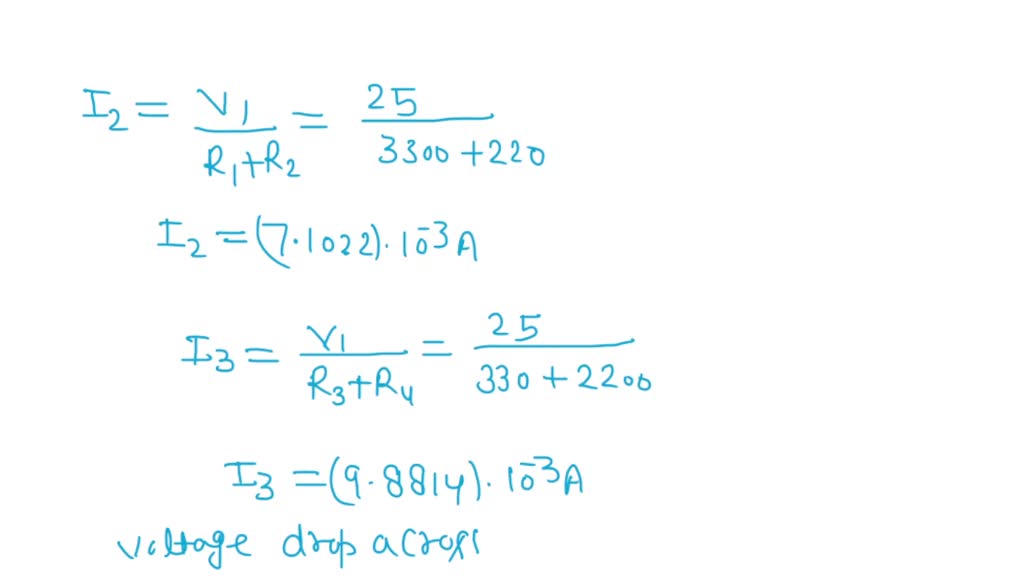 I₂ = V₁ / (R₁+R₂) = 25 / (3300+220)
I₂ = (7.1022).10⁻³A
I₃ = V₁ / (R₃+R₄) = 25 / (330+2200)
I₃ = (9.8814).10⁻³A
voltage drop across